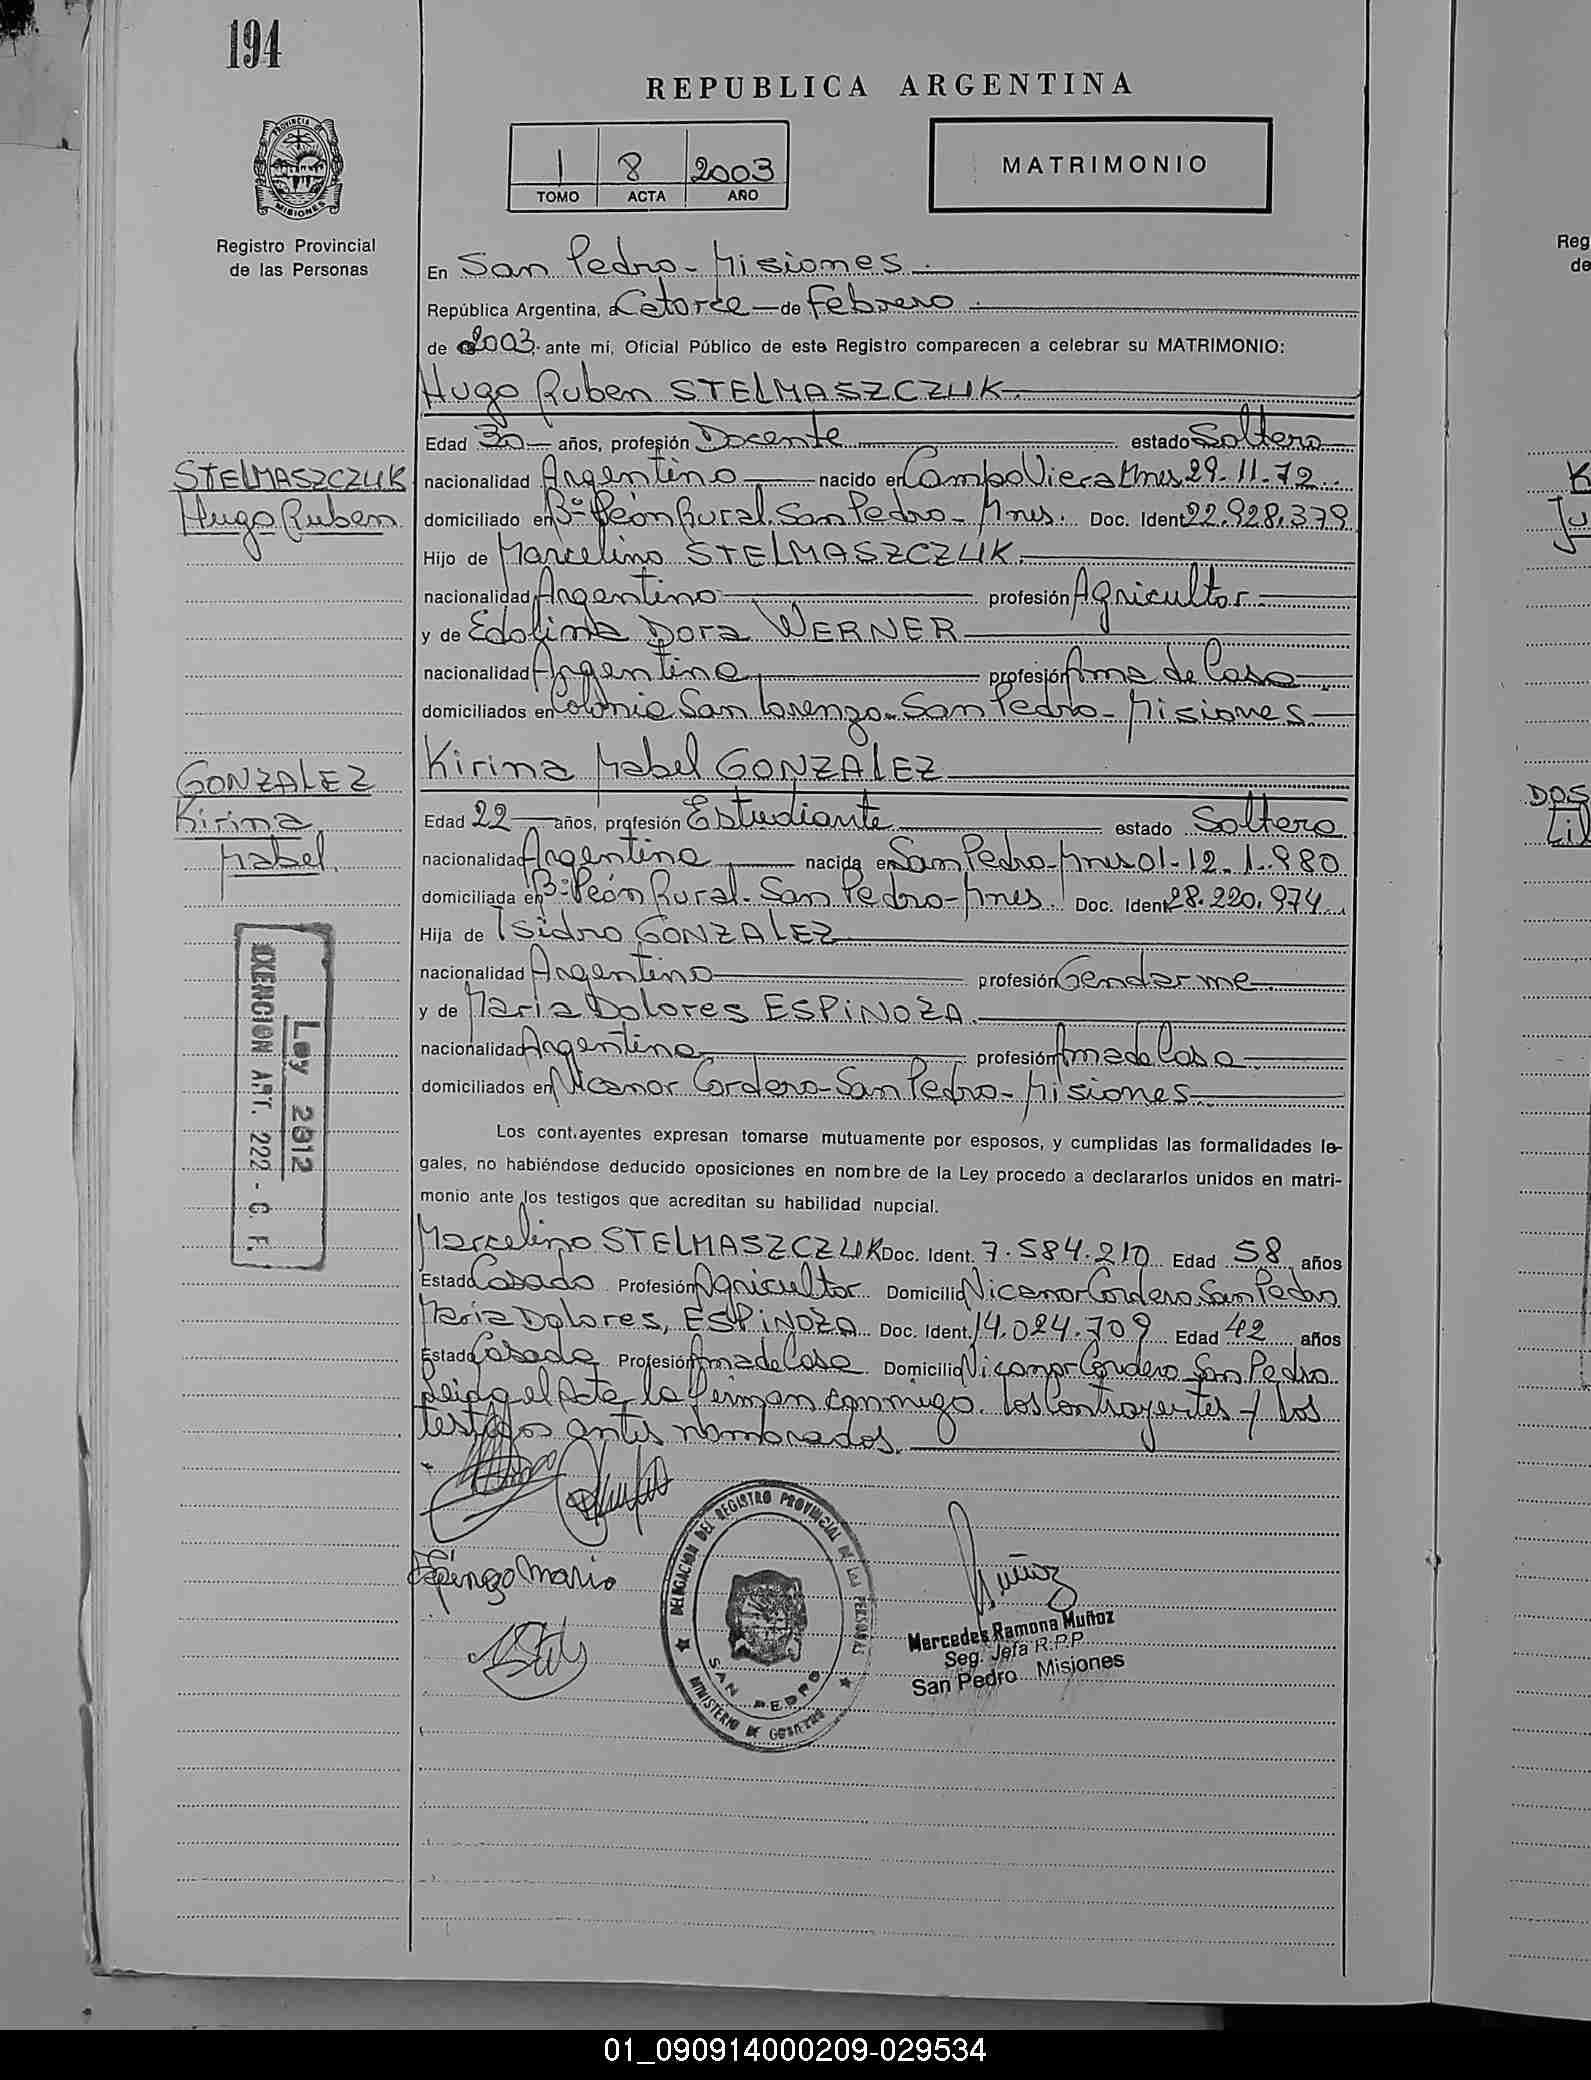 194
REPUBLICA ARGENTINA
1 8 2003
TOMO ACTA AÑO
MATRIMONIO
PROVINCIA DE
MISIONES
Registro Provincial
de las Personas
En San Pedro - Misiones
República Argentina, a Catorce de Febrero
de 2003 ante mí, Oficial Público de este Registro comparecen a celebrar su MATRIMONIO:
Hugo Ruben STELMASZCZUK
Edad 30 años, profesión Docente estado Soltero
STELMASZCZUK
Hugo Ruben
nacionalidad Argentino nacido en Campo Viera Mnes 29-11-72
domiciliado en Bº Peón Rural San Pedro - Mnes. Doc. Ident 22.928.379
Hijo de Marcelino STELMASZCZUK
nacionalidad Argentino profesión Agricultor
y de Edolima Dora WERNER
nacionalidad Argentina profesión Ama de Casa
domiciliados en Colonia San Lorenzo - San Pedro - Misiones
GONZALEZ
Kirina
Mabel
Kirina Mabel GONZALEZ
Edad 22 años, profesión Estudiante estado Soltera
nacionalidad Argentina nacida en San Pedro - Mnes 01-12-1.980
domiciliada en Bº Peón Rural - San Pedro - Mnes. Doc. Ident 28.220.974
Hija de Isidro GONZALEZ
nacionalidad Argentino profesión Gendarme
y de Maria Dolores ESPINOZA
nacionalidad Argentina profesión Ama de Casa
domiciliados en Nicanor Cordero - San Pedro - Misiones
Ley 2012
EXENCION ART. 222 - C. F.
Los contrayentes expresan tomarse mutuamente por esposos, y cumplidas las formalidades le-
gales, no habiéndose deducido oposiciones en nombre de la Ley procedo a declararlos unidos en matri-
monio ante los testigos que acreditan su habilidad nupcial.
Marcelino STELMASZCZUK Doc. Ident. 7.584.210 Edad 58 años
Estado Casado Profesión Agricultor Domicilio Nicanor Cordero San Pedro
Maria Dolores, ESPINOZA Doc. Ident. 14.024.709 Edad 42 años
Estado Casada Profesión Ama de Casa Domicilio Nicanor Cordero San Pedro
Leida el Acta la firman conmigo los Contrayentes y los
testigos antes nombrados.
Espinoza Maria
DELEGACION DEL REGISTRO PROVINCIAL DE LAS PERSONAS
SAN PEDRO
MINISTERIO DE GOBIERNO
Muñoz
Mercedes Ramona Muñoz
Seg. Jefa R.P.P
San Pedro Misiones
Reg
de
DOS
01_090914000209-029534